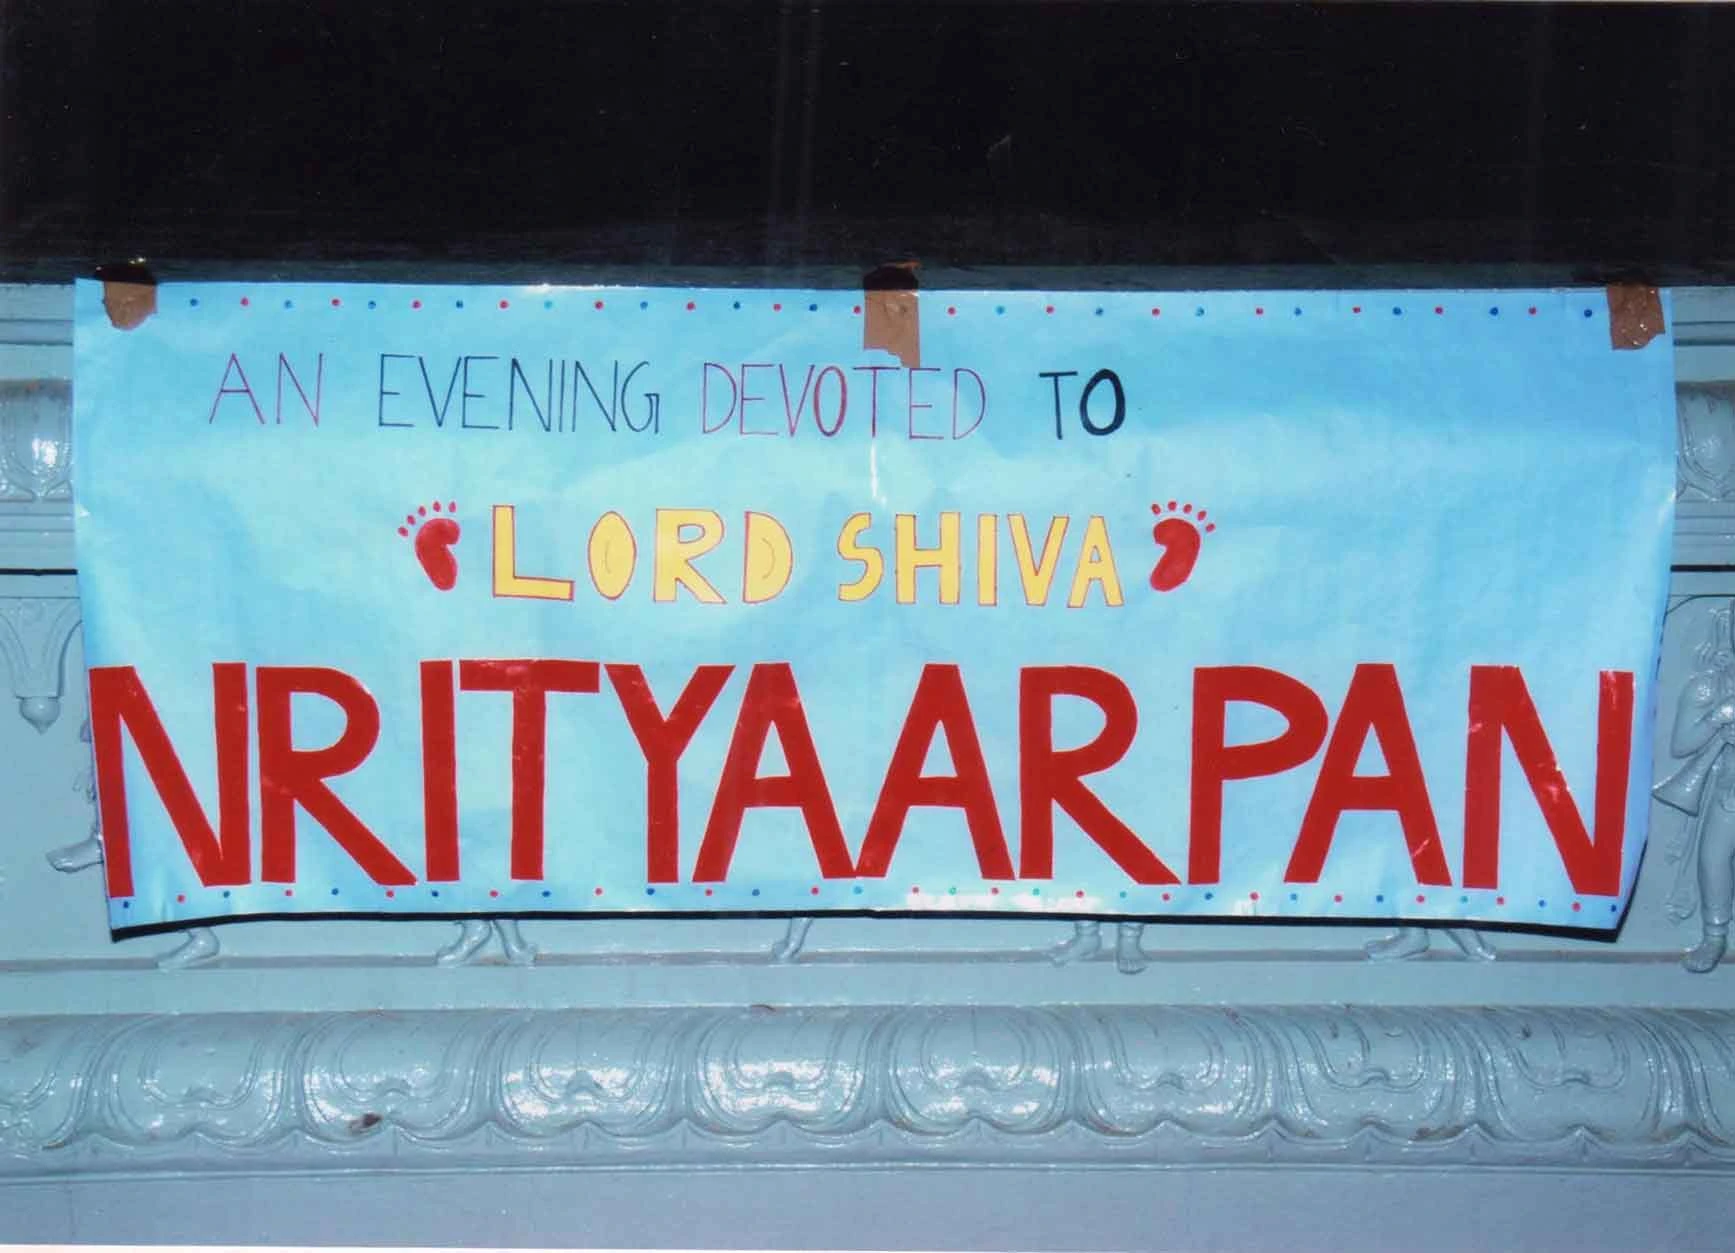 AN EVENING DEVOTED TO
LORD SHIVA
NRITYAARPAN